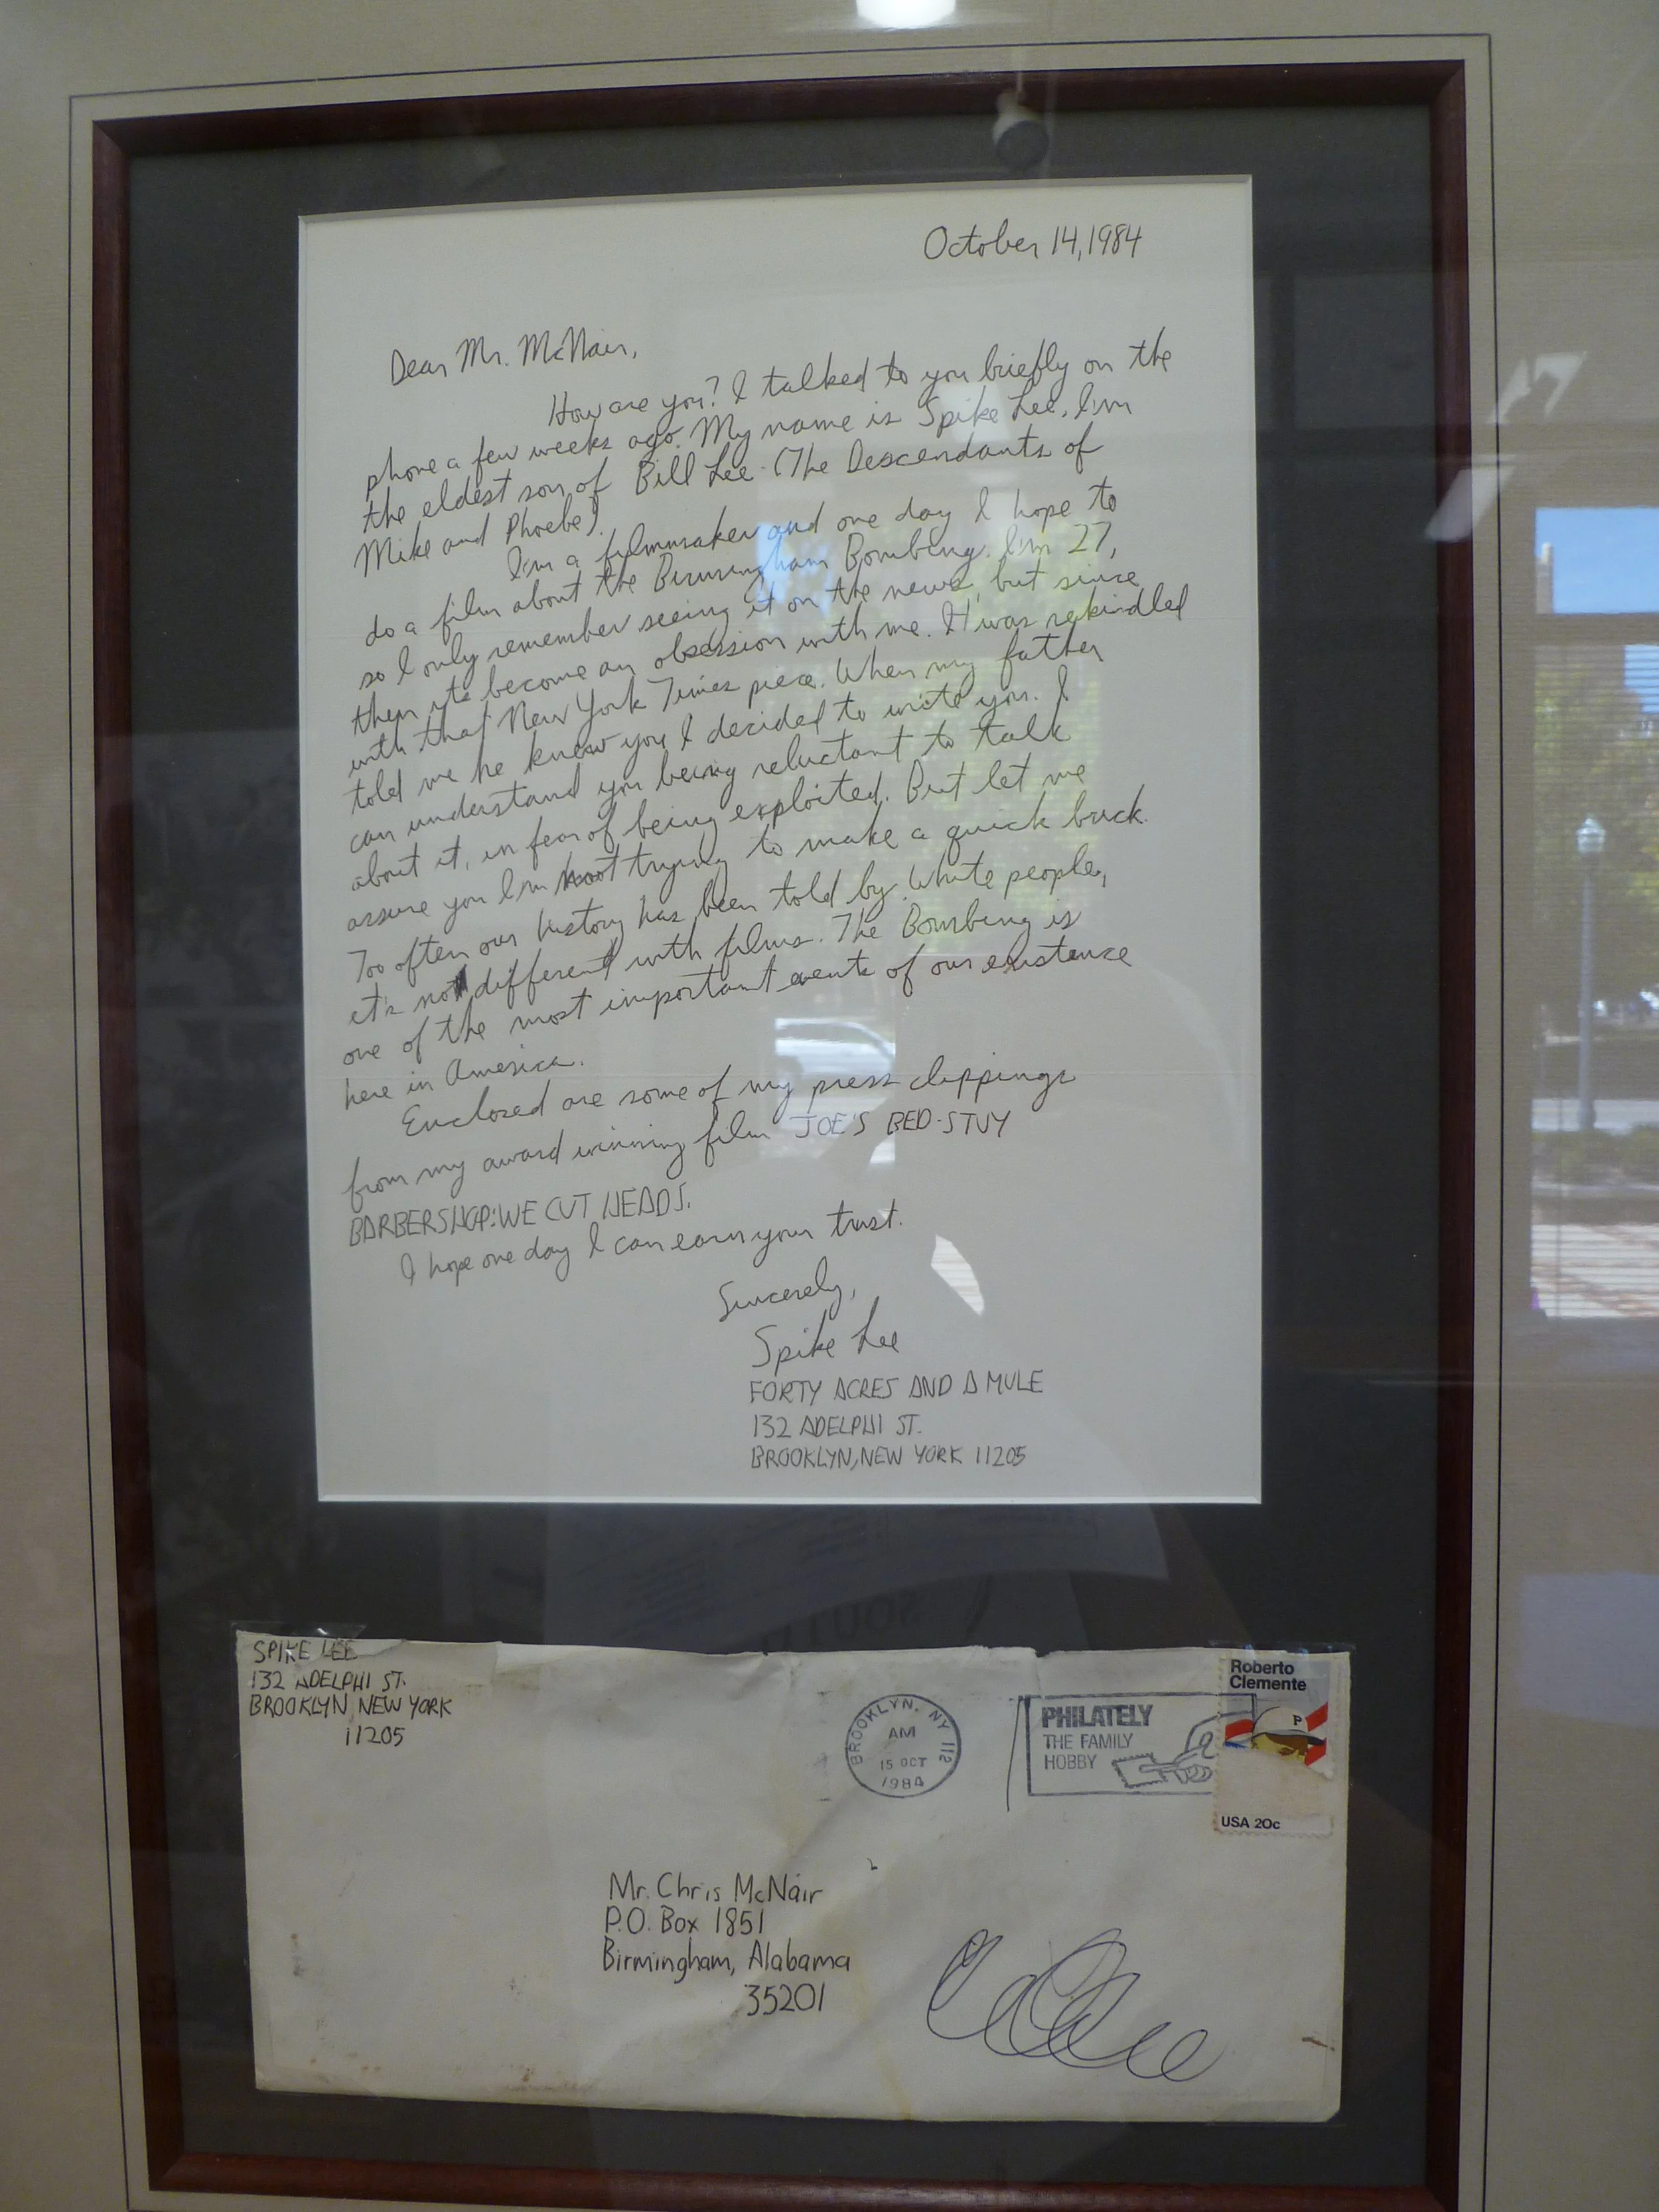 October 14, 1984
Dear Mr. McNair,
How are you? I talked to you briefly on the
phone a few weeks ago. My name is Spike Lee. I'm
the eldest son of Bill Lee (The Descendants of
Mike and Phoebe).
I'm a filmmaker and one day I hope to
do a film about the Birmingham Bombing. I'm 27,
so I only remember seeing it on the news, but since
then it's become an obsession with me. It was rekindled
with that New York Times piece. When my father
told me he knew you I decided to write you. I
can understand you being reluctant to talk
about it, in fear of being exploited. But let me
assure you I'm not trying to make a quick buck.
Too often our history has been told by White people,
it's not different with films. The Bombing is
one of the most important events of our existence
here in America.
Enclosed are some of my press clippings
from my award winning film JOE'S BED-STUY
BARBERSHOP: WE CUT HEADS.
I hope one day I can earn your trust.
Sincerely,
Spike Lee
FORTY ACRES AND A MULE
132 ADELPHI ST.
BROOKLYN, NEW YORK 11205
SPIKE LEE
132 ADELPHI ST.
BROOKLYN NEW YORK
11205
BROOKLYN, NY 112
AM
15 OCT
1984
PHILATELY
THE FAMILY
HOBBY
Roberto
Clemente
P
USA 20c
Mr. Chris McNair
P.O. Box 1851
Birmingham, Alabama
35201